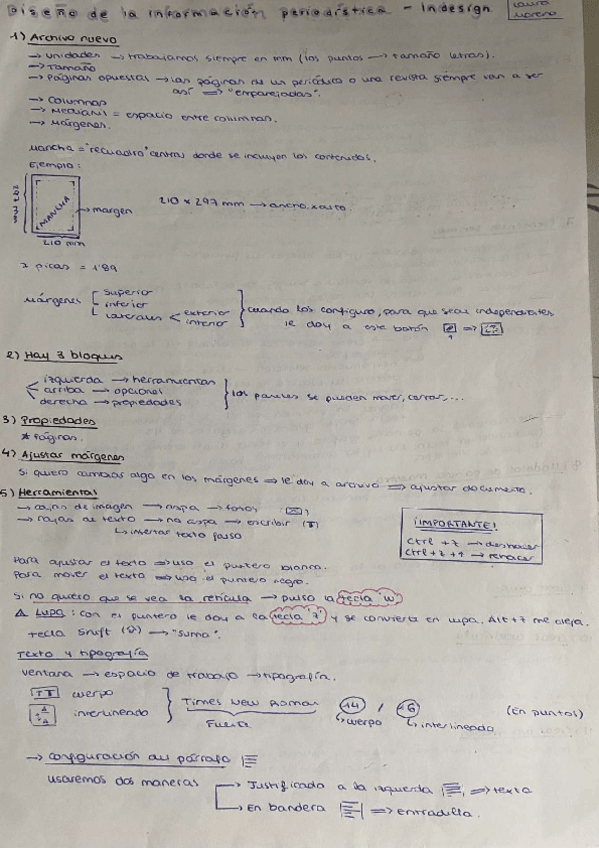 Diseño de la información periodística - Indesign
Laura Moreno
1) Archivo nuevo
→ Unidades → trabajamos siempre en mm (los puntos → tamaño letras).
→ Tamaño
→ Páginas opuestas → las páginas de un periódico o una revista siempre van a ser
así ⇒ "emparejadas".
→ Columnas
→ Medianil = espacio entre columnas.
→ Márgenes.
Mancha = "recuadro" central donde se incluyen los contenidos.
Ejemplo:
297 mm
MANCHA
→ margen
210 mm
210 x 297 mm → ancho x alto
Márgenes
superior
inferior
laterales < exterior
interior
cuando los configuro, para que sean independientes
le doy a este botón ⇒
2) Hay 3 bloques
izquierda → herramientas
arriba → opcional
derecha → propiedades
los paneles se pueden mover, cerrar,...
3) Propiedades
* Páginas.
4) Ajustar márgenes
Si quiero cambiar algo en los márgenes ⇒ le doy a archivo ⇒ ajustar documento.
5) Herramientas
→ cajas de imagen → aspa → fotos
→ cajas de texto → no aspa → escribir (T)
↳ insertar texto falso
¡IMPORTANTE!
Ctrl + z → deshacer
Ctrl + z + ↑ → rehacer
Para ajustar el texto ⇒ uso el puntero blanco.
Para mover el texto ⇒ uso el puntero negro.
Si no quiero que se vea la retícula → pulso la tecla "w"
Δ Lupa: con el puntero le doy a la tecla "z" y se convierte en lupa. Alt + z me aleja.
tecla Shift (⇧) → "suma".
Texto y tipografía
Ventana → espacio de trabajo → tipografía.
TT cuerpo
interlineado
Times New Roman
Fuente
14 / 16 (en puntos)
↳ cuerpo ↳ interlineado
→ Configuración del párrafo
usaremos dos maneras
→ Justificado a la izquierda ⇒ texto
→ En bandera ⇒ entradilla.